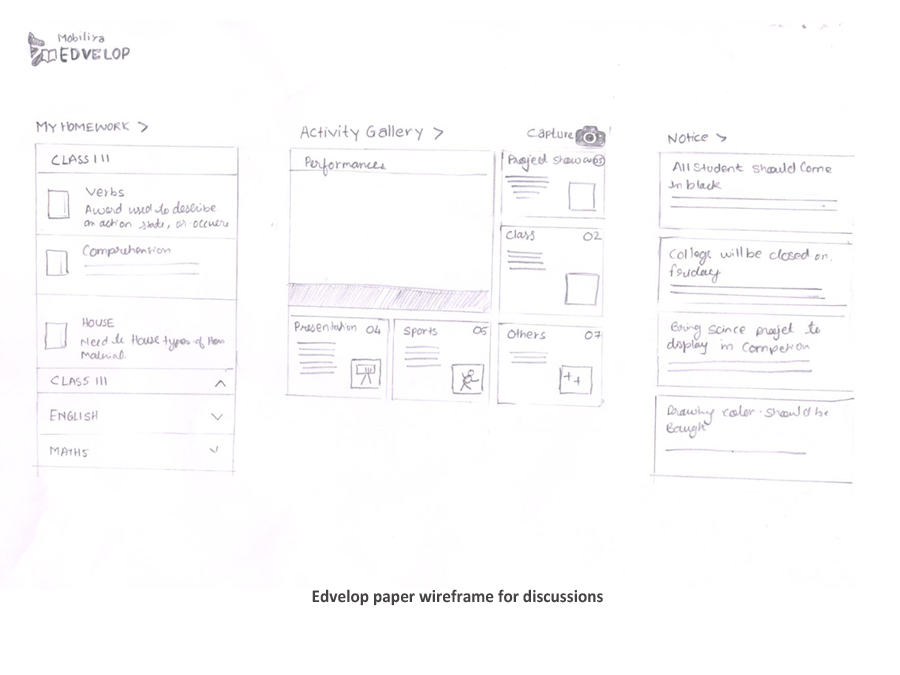 Mobiliya
EDVELOP
MY HOMEWORK >
CLASS III
Verbs
Award used to describe
an action state, or occure
Comprehension
HOUSE
Need to House types of
Material
CLASS III
ENGLISH
MATHS
Activity Gallery >
Capture
Performances
Project
Class 02
Presentation 04
Sports 05
Others 07
Notice >
All Student Should Come
In black
College will be closed on.
friday
Bring Scince project to
display in Competion
Drawing color should be
Baugh
Edvelop paper wireframe for discussions